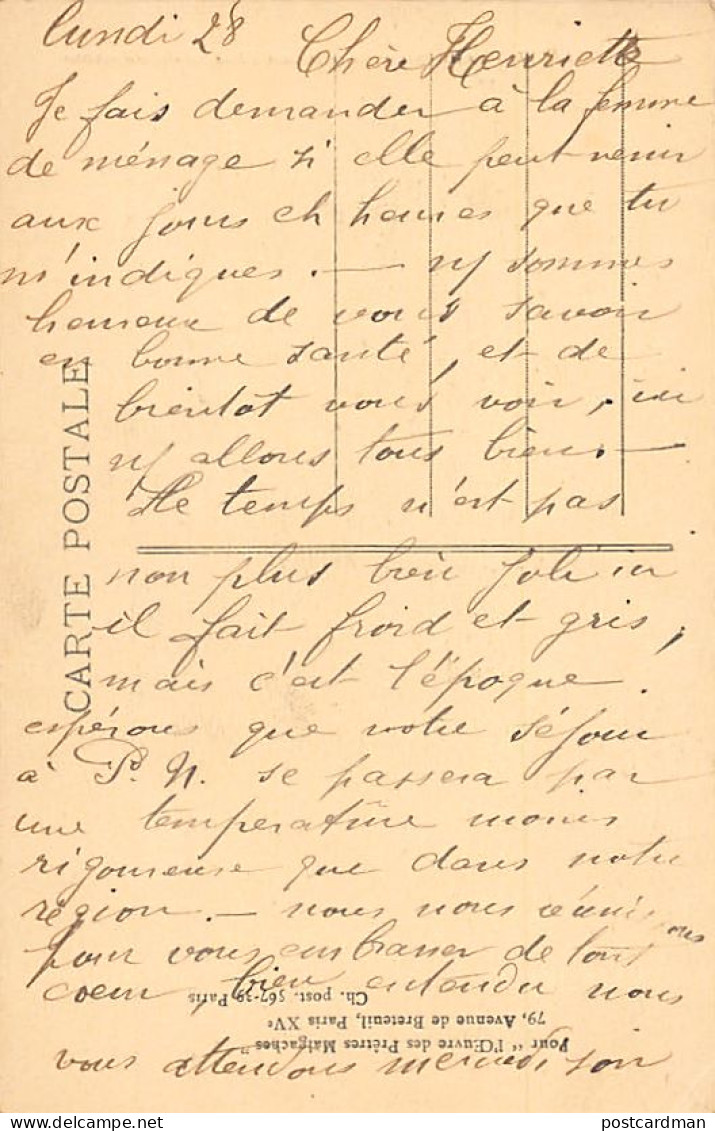 lundi 28
Chère Henriette
Je fais demander à la femme
de ménage si elle peut venir
aux jours et heures que tu
m'indiques. — ns sommes
heureux de vous savoir
en bonne santé, et de
bientot vous voir, ici
ns allons tous bien. —
Le temps n'est pas
non plus bien joli ici
il fait froid et gris,
mais c'est l'époque.
espérons que votre séjour
à P. N. se passera par
une température moins
rigoureuse que dans notre
région. — nous nous réunissons
pour vous embrasser de tout
coeur, bien entendu nous
vous attendons mercredi soir
CARTE POSTALE
Pour "l'Œuvre des Prêtres Malgaches"
79, Avenue de Breteuil, Paris XVe
Ch. post. 567-39 Paris
postcardman